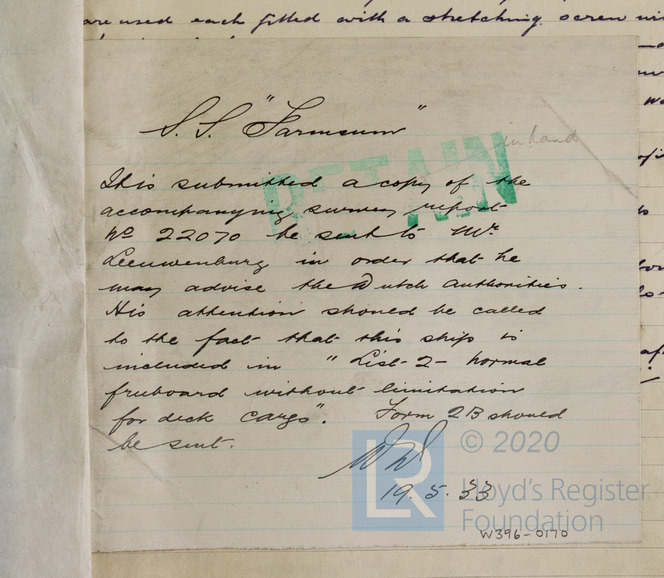 are used each fitted with a stretching screw
S.S. "Farmsum"
in hand
RETAIN
It is submitted a copy of the
accompanying survey report
No 22070 be sent to Mr
Leeuwenburg in order that he
may advise the Dutch authorities.
His attention should be called
to the fact that this ship is
included in "List 2 - Normal
freeboard without limitation
for deck cargo". Form 2B should
be sent.
19.5.33
LR
© 2020
Lloyd's Register
Foundation
W396-0170